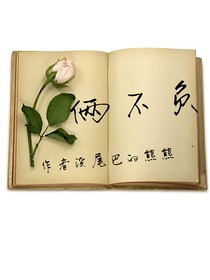 俩不负
作者没尾巴的熊熊